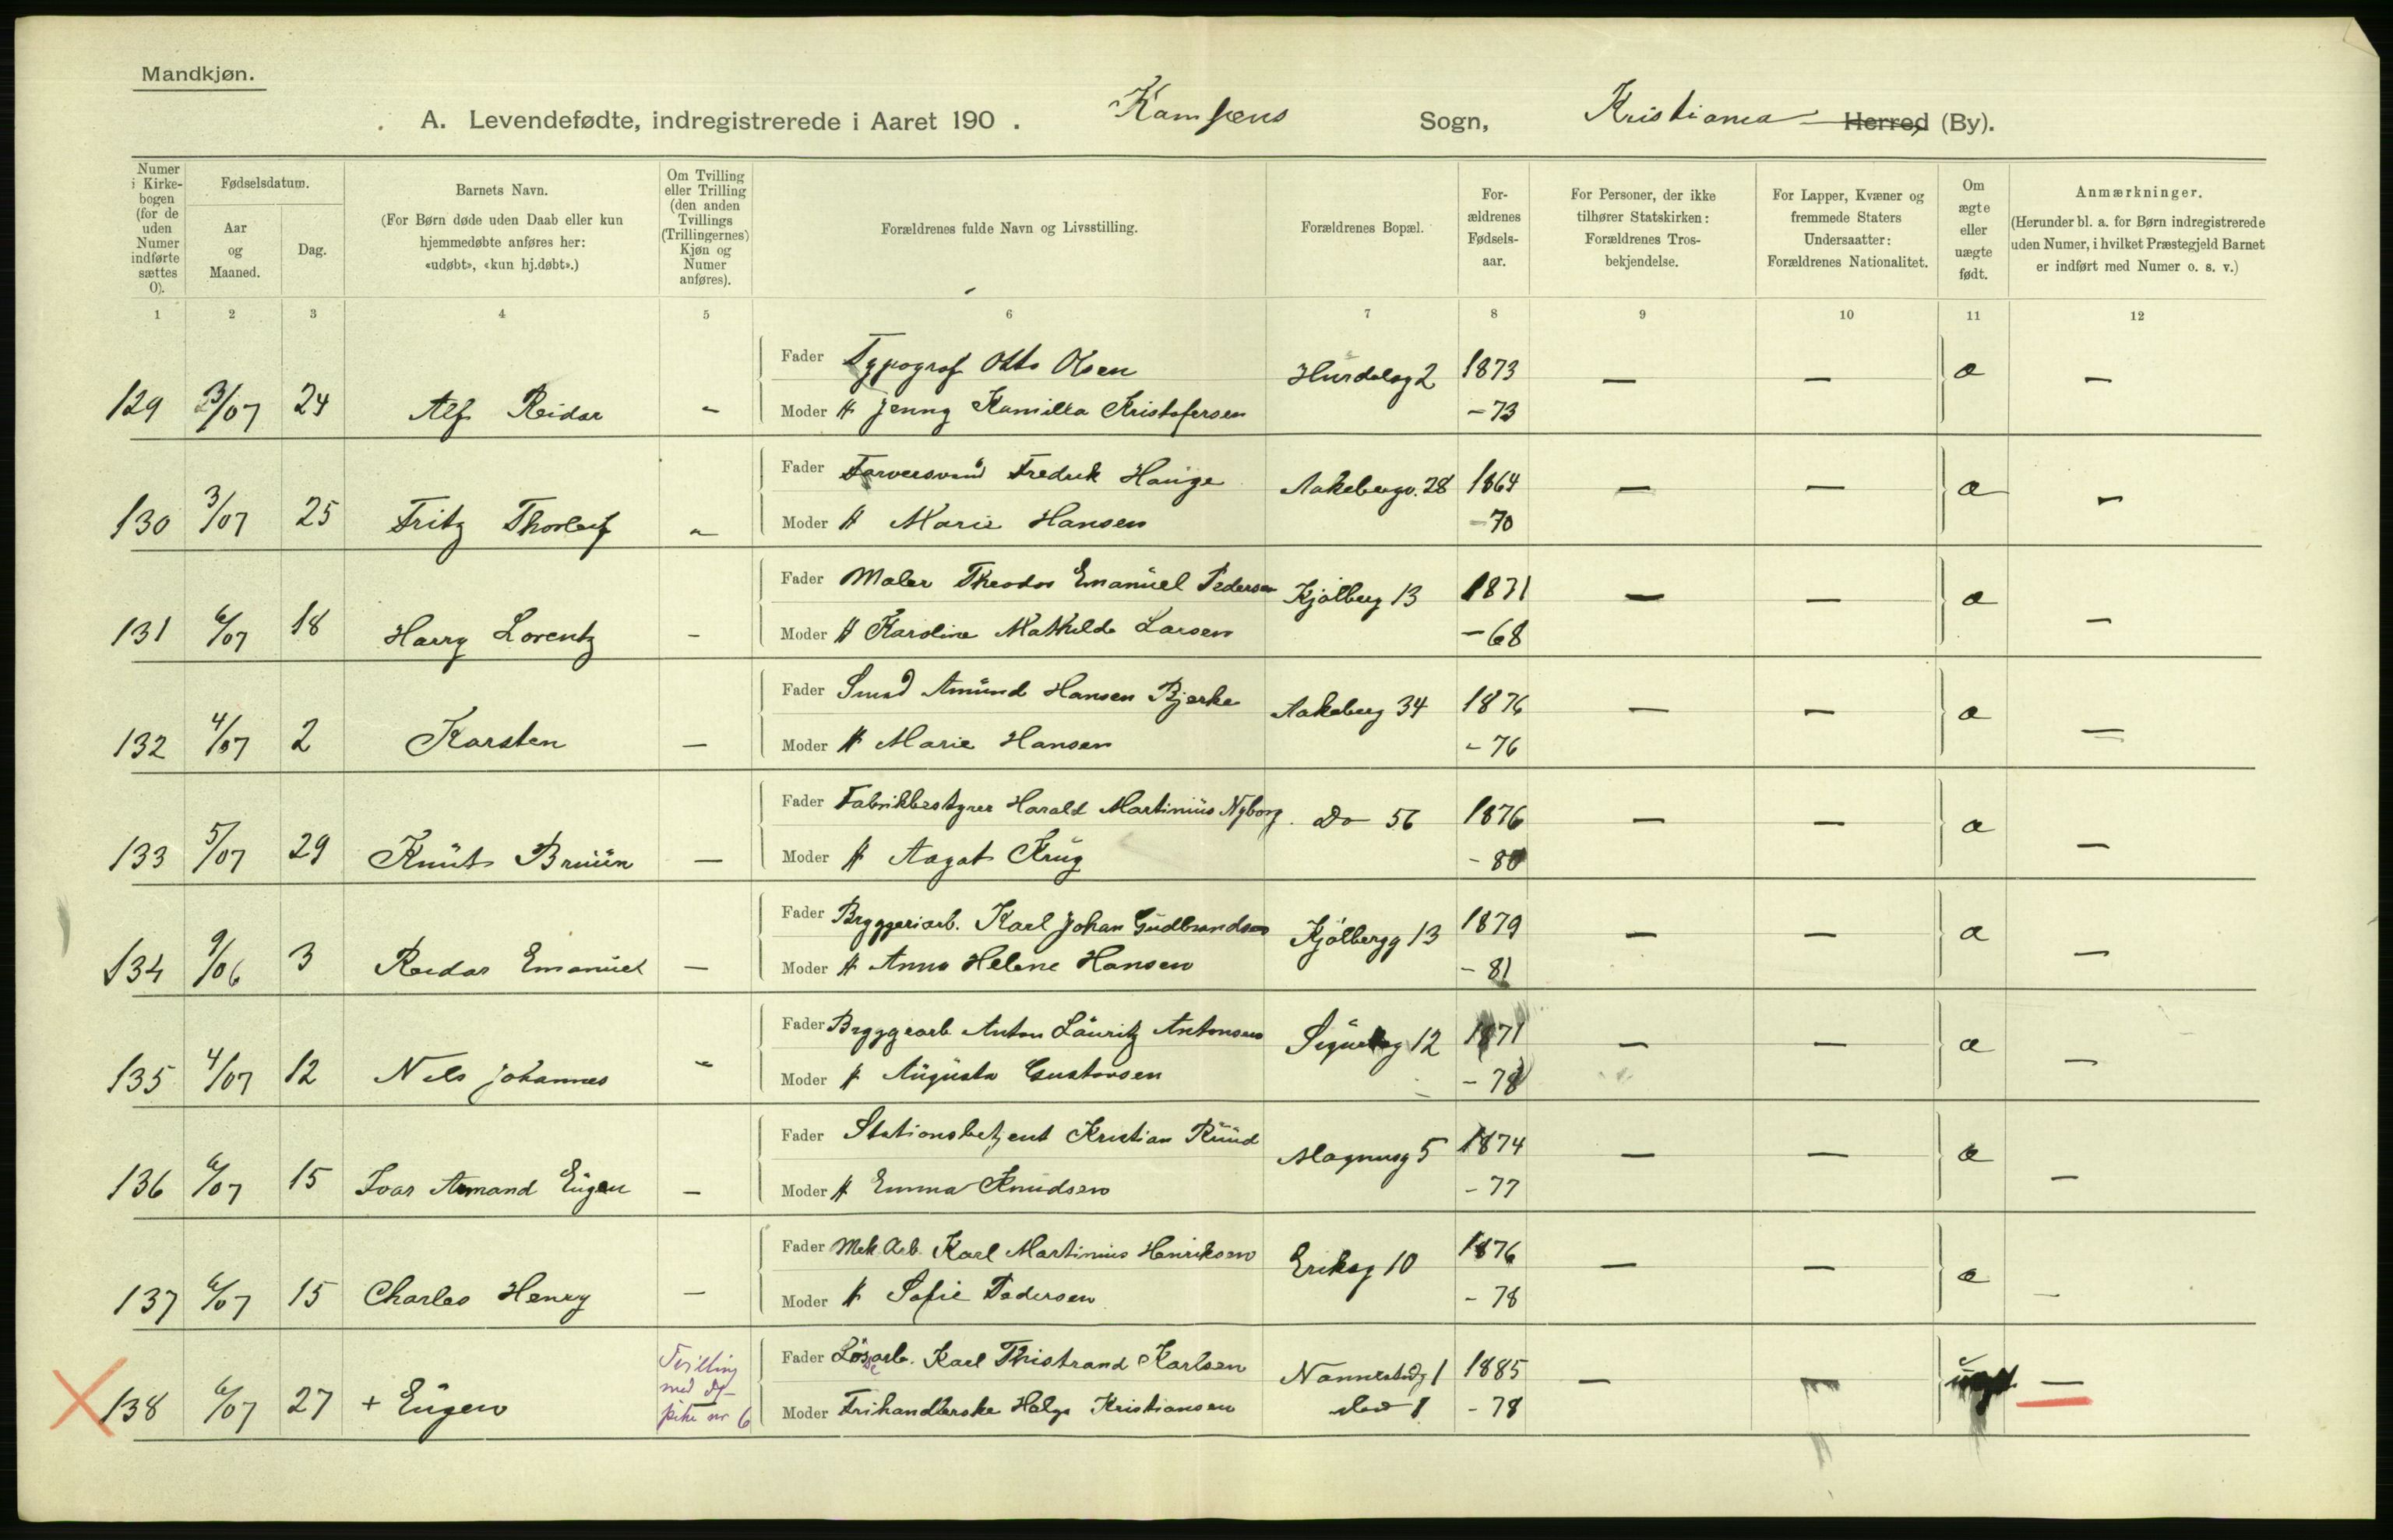 Mandkjøn.
A. Levendefødte, indregistrerede i Aaret 190 . Kampens Sogn, Kristiania Herred (By).
Numer i Kirkebogen (for de uden Numer indførte sættes 0).
Fødselsdatum.
Aar og Maaned.
Dag.
Barnets Navn.
(For Børn døde uden Daab eller kun hjemmedøbte anføres her: «udøbt», «kun hj.døbt».)
Om Tvilling eller Trilling (den anden Tvillings (Trillingernes) Kjøn og Numer anføres).
Forældrenes fulde Navn og Livsstilling.
Forældrenes Bopæl.
Forældrenes Fødselsaar.
For Personer, der ikke tilhører Statskirken: Forældrenes Trosbekjendelse.
For Lapper, Kvæner og fremmede Staters Undersaatter: Forældrenes Nationalitet.
Om ægte eller uægte født.
Anmærkninger.
(Herunder bl. a. for Børn indregistrerede uden Numer, i hvilket Præstegjeld Barnet er indført med Numer o. s. v.)
1 2 3 4 5 6 7 8 9 10 11 12
Fader Typograf Otto Olsen Hurdalsg 2 1873 — — æ —
129 3/07 24 Alf Reidar – Moder H Jenny Kamilla Kristofersen – 73
Fader Farversvend Fredrik Hauge Aakebergv. 28 1864 — — æ —
130 3/07 25 Fritz Thorleif – Moder H Marie Hansen – 70
Fader Maler Theodor Emanuel Pedersen Kjølberg 13 1871 — — æ —
131 6/07 18 Harry Lorentz – Moder H Karoline Mathilde Larsen – 68
Fader Smed Amund Hansen Bjerke Aakeberg 34 1876 — — æ —
132 4/07 2 Karsten – Moder H Marie Hansen – 76
Fader Fabrikbestyrer Harald Martinius Nyborg Do 56 1876 — — æ —
133 5/07 29 Knut Bruun – Moder H Aagot Krug – 80
Fader Bryggeriarb. Karl Johan Gudbrandsen Kjølbergg 13 1879 — — æ —
134 9/06 3 Reidar Emanuel – Moder H Anna Helene Hansen – 81
Fader Bryggearb Anton Lauritz Antonsen 12 1871 — — æ —
135 4/07 12 Nils Johannes – Moder H Augusta Gustavsen – 78
Fader Stationsbetjent Kristian Ruud Magnusg 5 1874 — — æ —
136 6/07 15 Ivar Armand Eugen – Moder H Emma Knudsen – 77
Fader Mek. Arb. Karl Martinius Henriksen Eriksg 10 1876 — — æ —
137 6/07 15 Charles Henry – Moder H Sofie Pedersen – 78
Tvilling med pike nr 6
Fader Løsarb. Karl Thistrand Karlsen 1 1885 — — uægt —
138 6/07 27 + Eugen Moder Frihandlerske Helga Kristiansen – 78